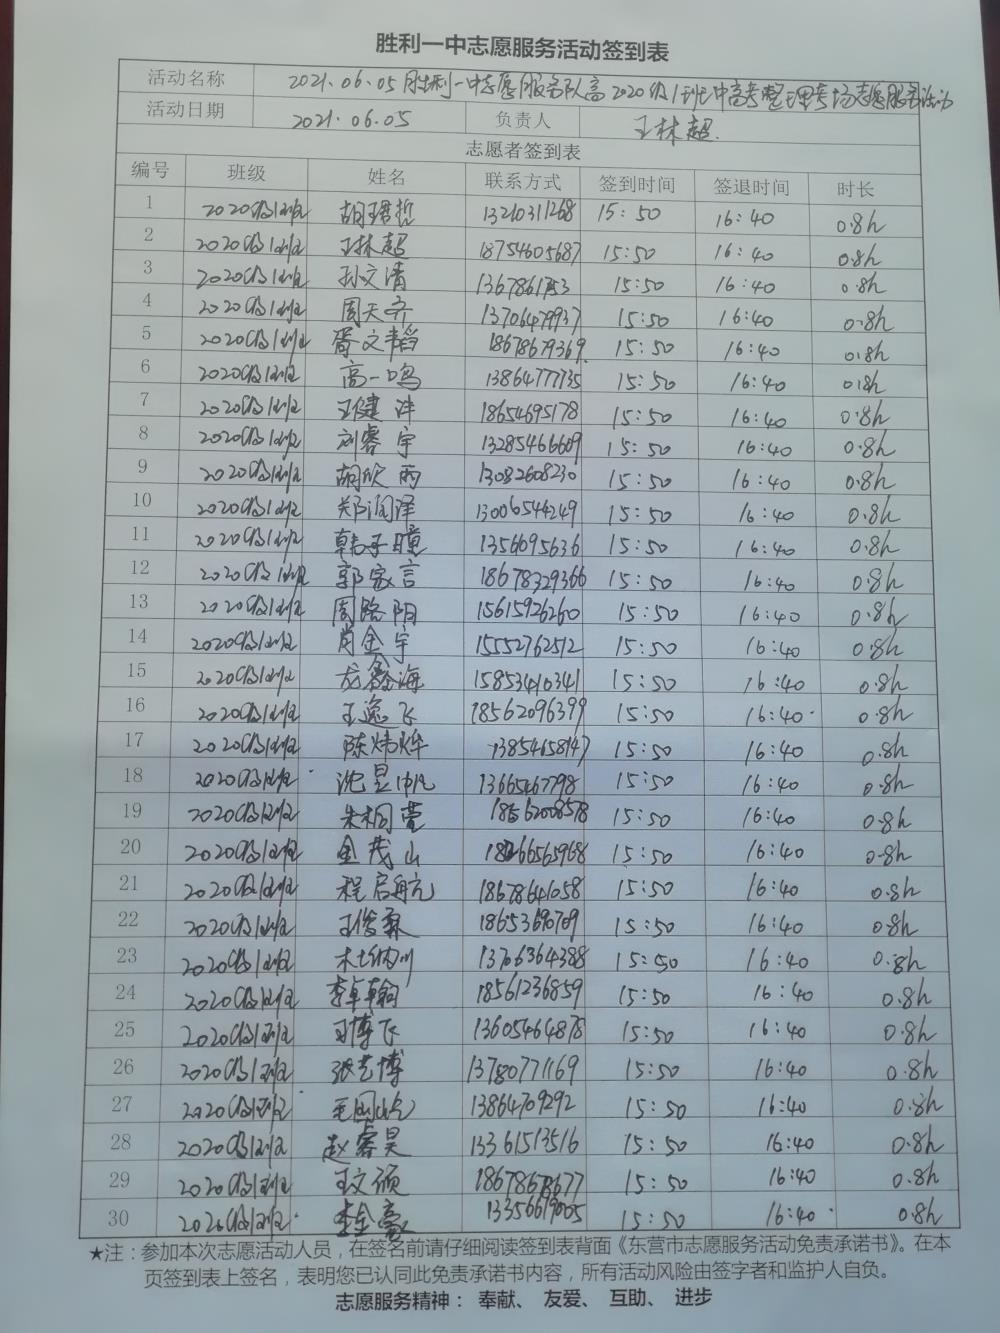 胜利一中志愿服务活动签到表
活动名称 2021.06.05胜利一中志愿服务队高2020级1班中高考整理考场志愿服务活动
活动日期 2021.06.05 负责人 王林超
志愿者签到表
编号 班级 姓名 联系方式 签到时间 签退时间 时长
1 2020级1班 胡珺哲 13210311268 15:50 16:40 0.8h
2 2020级1班 王林超 18754605687 15:50 16:40 0.8h
3 2020级1班 孙文清 15:50 16:40 0.8h
4 2020级1班 周天齐 13706479937 15:50 16:40 0.8h
5 2020级1班 胥文韬 18678679369 15:50 16:40 0.8h
6 2020级1班 高一鸣 13864777735 15:50 16:40 0.8h
7 2020级1班 王健沣 18654695178 15:50 16:40 0.8h
8 2020级1班 刘睿宇 13285466609 15:50 16:40 0.8h
9 2020级1班 胡欣雨 13082608230 15:50 16:40 0.8h
10 2020级1班 郑润泽 13006544249 15:50 16:40 0.8h
11 2020级1班 韩子瞳 1356095636 15:50 16:40 0.8h
12 2020级1班 郭家言 18678329366 15:50 16:40 0.8h
13 2020级1班 周路阳 15615926260 15:50 16:40 0.8h
14 2020级1班 肖金宇 15552762512 15:50 16:40 0.8h
15 2020级1班 龙鑫海 15853410341 15:50 16:40 0.8h
16 2020级1班 王逸飞 18562096399 15:50 16:40 0.8h
17 2020级1班 陈炜烨 13854658147 15:50 16:40 0.8h
18 2020级1班 沈昱帆 13665467798 15:50 16:40 0.8h
19 2020级1班 朱桐萱 18562008578 15:50 16:40 0.8h
20 2020级1班 金茂山 18266565968 15:50 16:40 0.8h
21 2020级1班 程启航 18678641058 15:50 16:40 0.8h
22 2020级1班 王俊霖 18653690709 15:50 16:40 0.8h
23 2020级1班 13706364388 15:50 16:40 0.8h
24 2020级1班 李卓翰 18561236859 15:50 16:40 0.8h
25 2020级1班 王博飞 13605464878 15:50 16:40 0.8h
26 2020级1班 张艺博 13780771169 15:50 16:40 0.8h
27 2020级1班 13864709292 15:50 16:40 0.8h
28 2020级1班 赵睿昊 13361513516 15:50 16:40 0.8h
29 2020级1班 王文硕 18678678677 15:50 16:40 0.8h
30 2020级1班 李金豪 13356619005 15:50 16:40 0.8h
★注：参加本次志愿活动人员，在签名前请仔细阅读签到表背面《东营市志愿服务活动免责承诺书》。在本
页签到表上签名，表明您已认同此免责承诺书内容，所有活动风险由签字者和监护人自负。
志愿服务精神： 奉献、 友爱、 互助、 进步